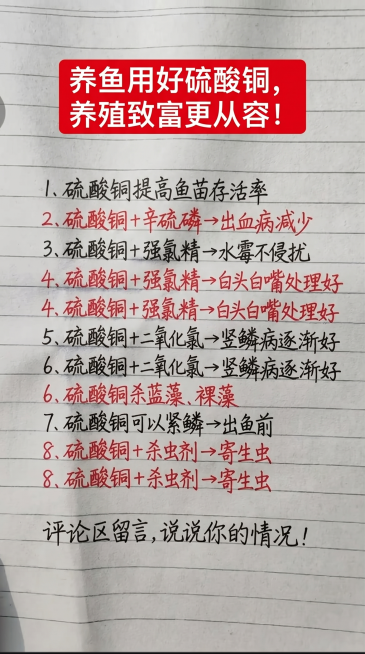 养鱼用好硫酸铜，
养殖致富更从容！
1、硫酸铜提高鱼苗存活率
2、硫酸铜+辛硫磷→出血病减少
3、硫酸铜+强氯精→水霉不侵扰
4、硫酸铜+强氯精→白头白嘴处理好
4、硫酸铜+强氯精→白头白嘴处理好
5、硫酸铜+二氧化氯→竖鳞病逐渐好
6、硫酸铜+二氧化氯→竖鳞病逐渐好
6、硫酸铜杀蓝藻、裸藻
7、硫酸铜可以紧鳞→出鱼前
8、硫酸铜+杀虫剂→寄生虫
8、硫酸铜+杀虫剂→寄生虫
评论区留言，说说你的情况！